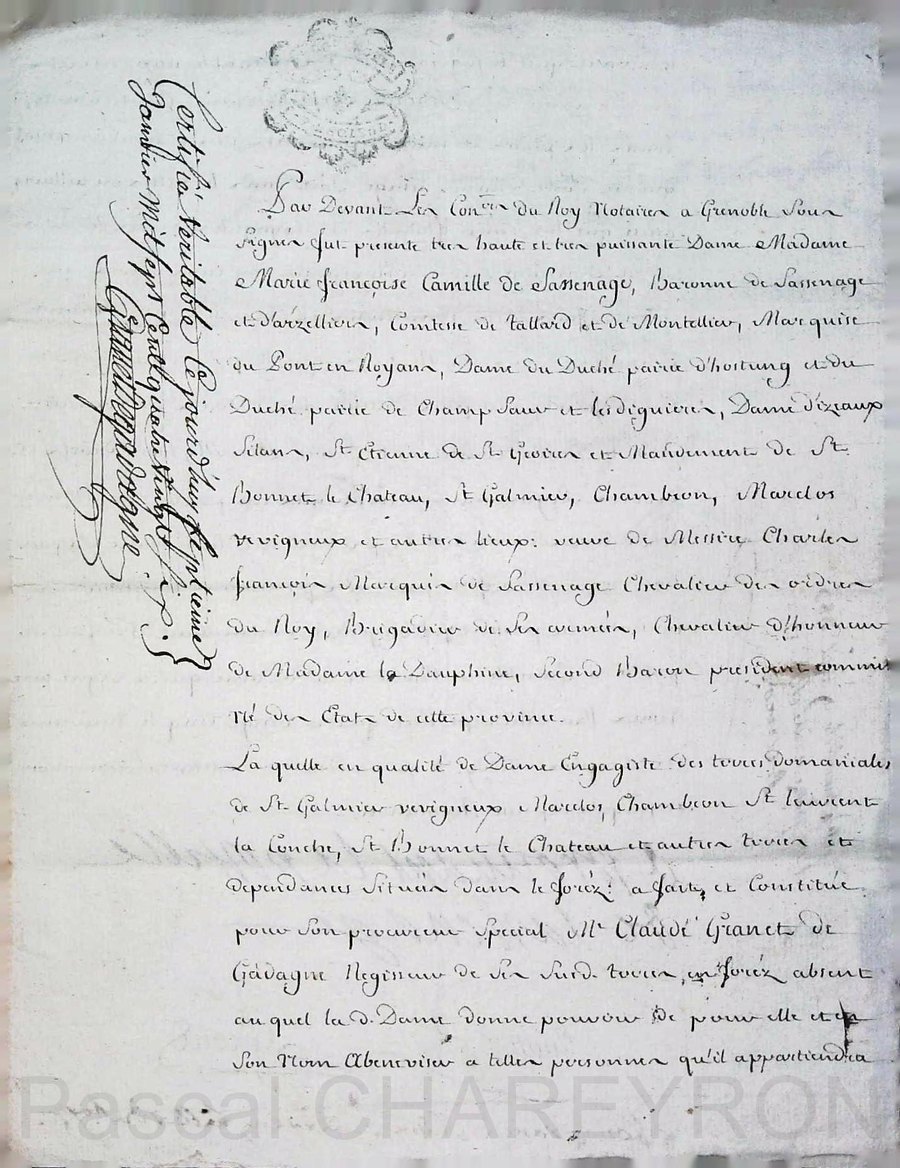 Certifié Veritable Ce jourd'huy Septieme
Janvier mil sept Cent quatre vingt six.
Granet de gadagne
Par Devant Les Con.ers du Roy Notaires a Grenoble Sous
signes fut presente tres haute et tres puissante Dame Madame
Marie françoise Camille de Sassenage, Baronne de Sassenage
et d'arzelliers, Comtesse de tallard et de Montellier, Marquise
du Pont en Royans, Dame du Duché pairie d'hostung et du
Duché pairie de Champ Saur et lesdiguieres, Dame d'izeaux
Silans, St Etienne de St Geoires et Mandement de St
Bonnet le Chateau, St Galmier, Chambeon, Marclos
vevigneux et autres lieux: veuve de Messire Charles
françois Marquis de Sassenage Chevalier des ordres
du Roy, Brigadier de Ses armées, Chevalier d'honneur
de Madame la Dauphine, Second Baron president commis
né des Etats de cette province.
La quelle en qualité de Dame Engagiste des terres domaniales
de St Galmier vevigneux Marclos, Chambeon St laurent
la Conche, St Bonnet le Chateau et autres terres et
dependances Situées dans le foréz: a fait, et Constitué
pour Son procureur Special Mr Claude Granet de
Gadagne Regisseur de Ses Susd. terres en foréz absent
au quel la d. Dame donne pouvoir de pour elle et en
Son Nom Abeneviser a telles personnes qu'il appartiendra
Pascal CHAREYRON